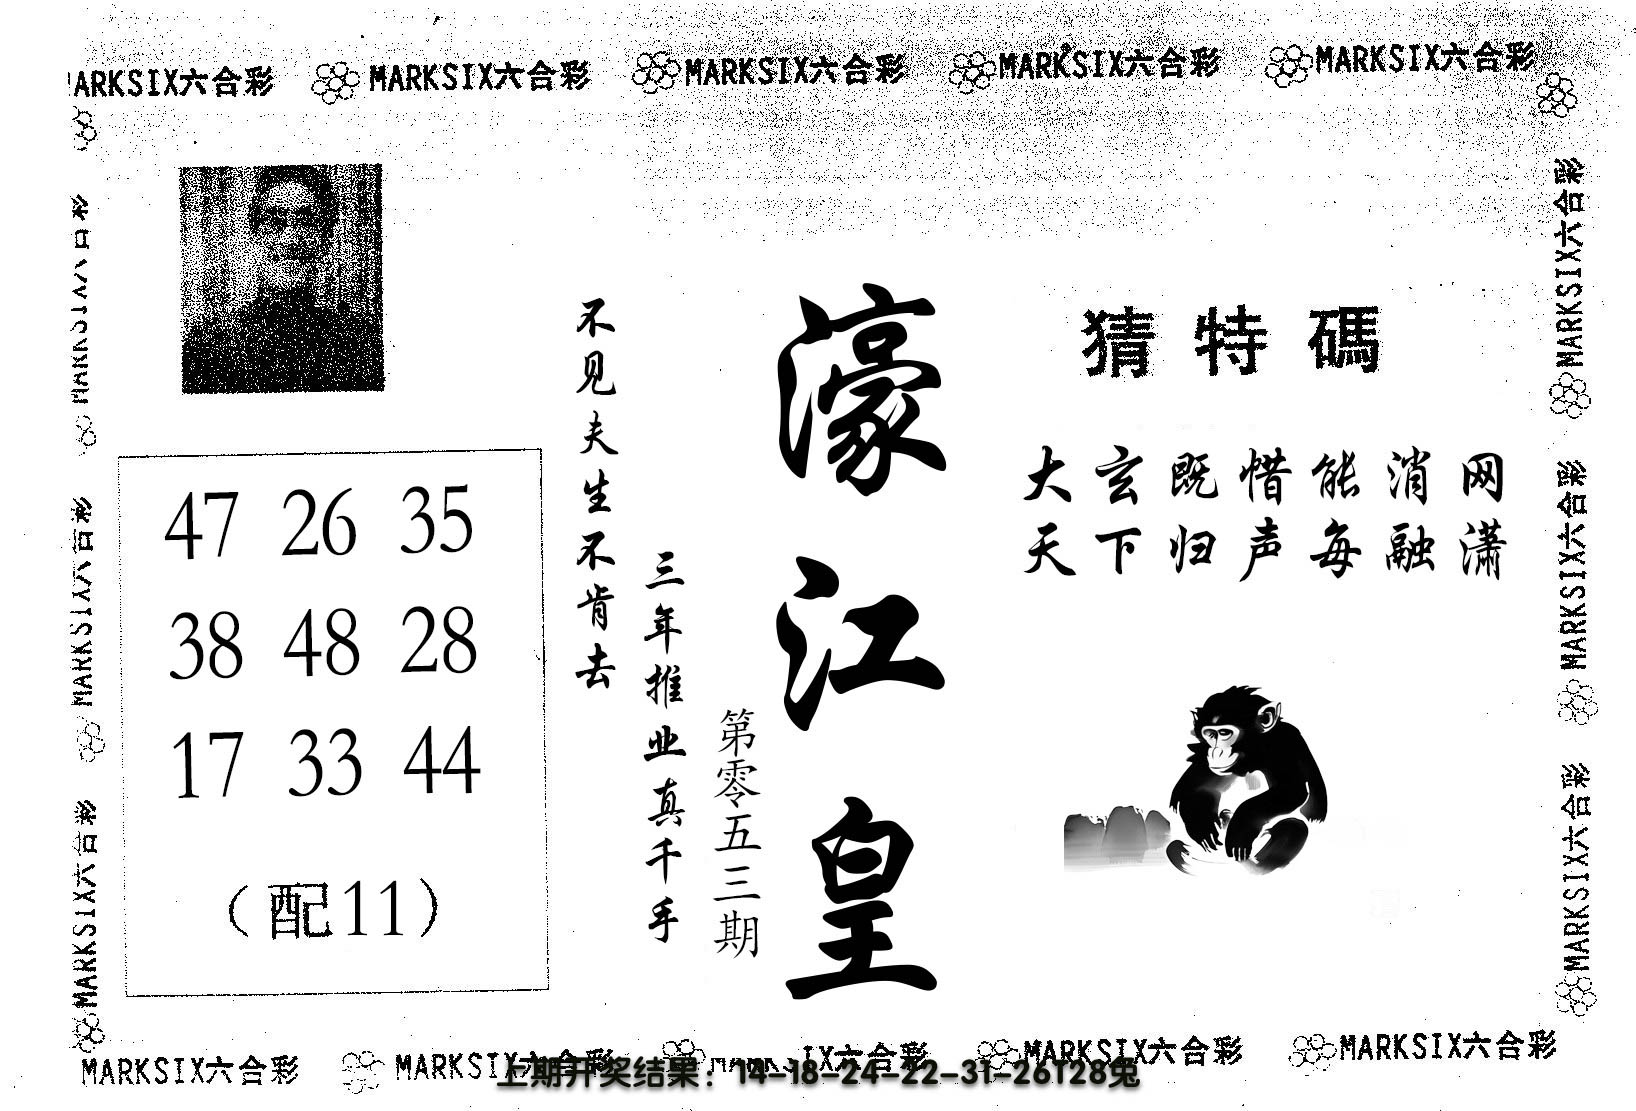 MARKSIX六合彩 MARKSIX六合彩 MARKSIX六合彩 MARKSIX六合彩 MARKSIX六合彩
猜特碼
大玄既惜能消网
天下归声每融潇
濠江皇
第零五三期
三年推业真千手
不见夫生不肯去
47 26 35
38 48 28
17 33 44
（配11）
MARKSIX六合彩
MARKSIX六合彩
MARKSIX六合彩
MARKSIX六合彩
MARKSIX六合彩
MARKSIX六合彩
MARKSIX六合彩 MARKSIX六合彩 MARKSIX六合彩 MARKSIX六合彩
上期开奖结果：14-18-24-22-31-26T28兔